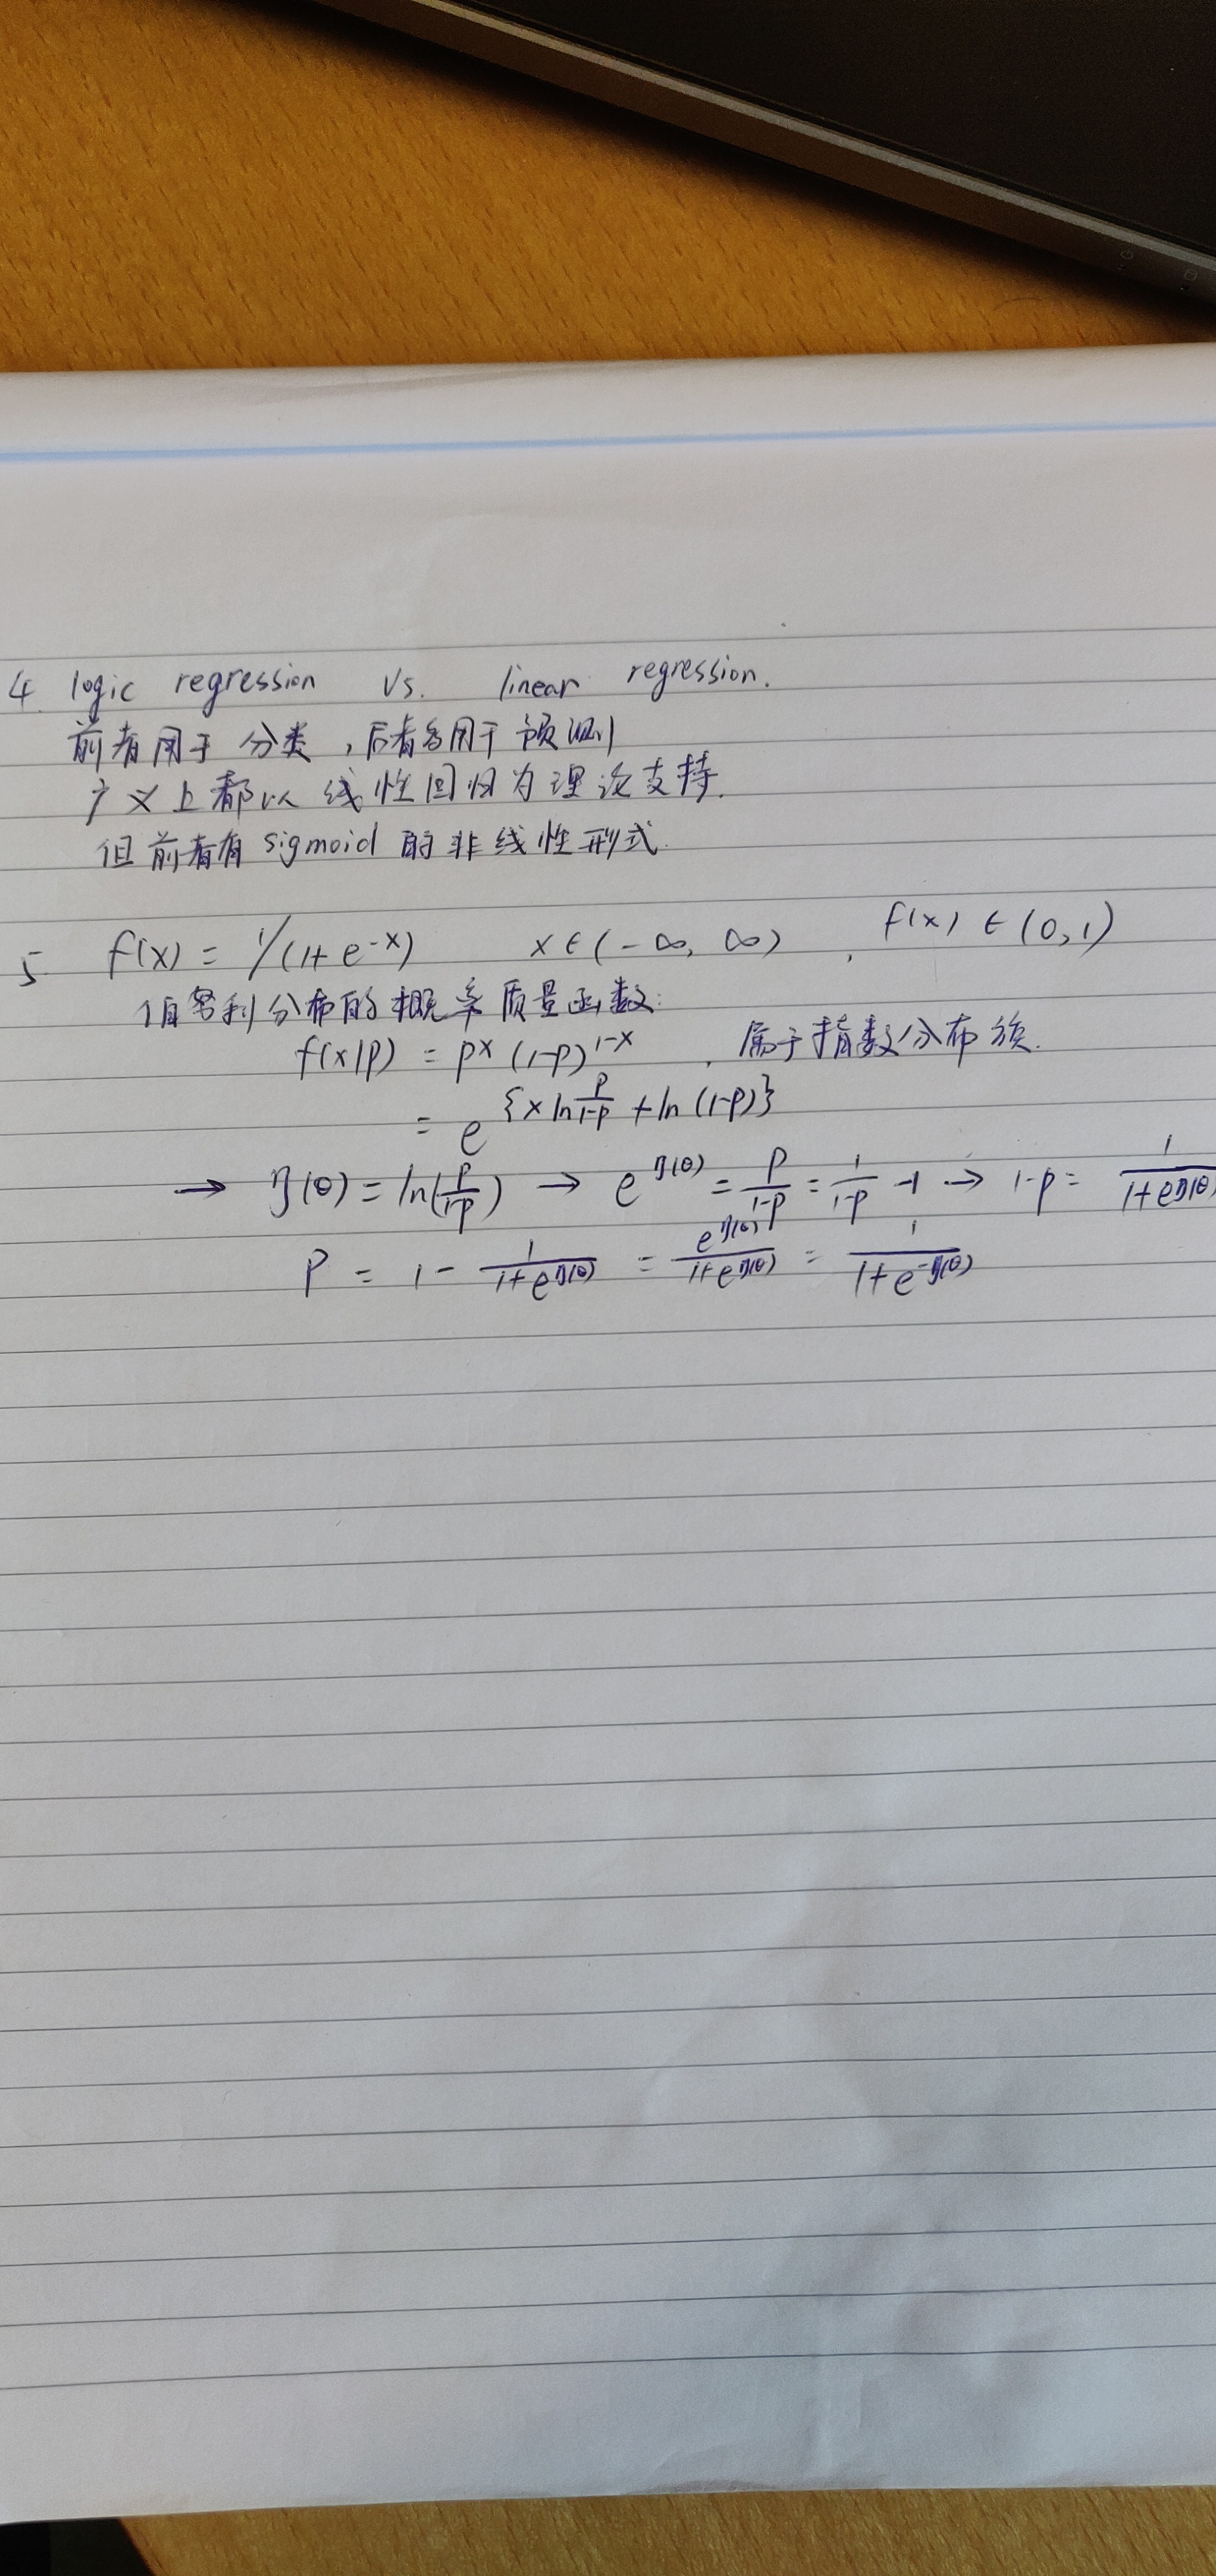 4. logic regression vs. linear regression.
前者用于分类，后者多用于预测
广义上都以线性回归为理论支持.
但前者有 sigmoid 的非线性形式.
5 f(x) = 1/(1+e^-x) x∈(-∞, ∞), f(x) ∈ (0,1)
伯努利分布的概率质量函数:
f(x|p) = p^x (1-p)^1-x , 属于指数分布族.
= e^{x ln p/1-p + ln (1-p)}
→ η(θ) = ln(p/1-p) → e^η(θ) = p/1-p = 1/1-p -1 → 1-p = 1/1+e^η(θ)
P = 1 - 1/1+e^η(θ) = e^η(θ)/1+e^η(θ) = 1/1+e^-η(θ)